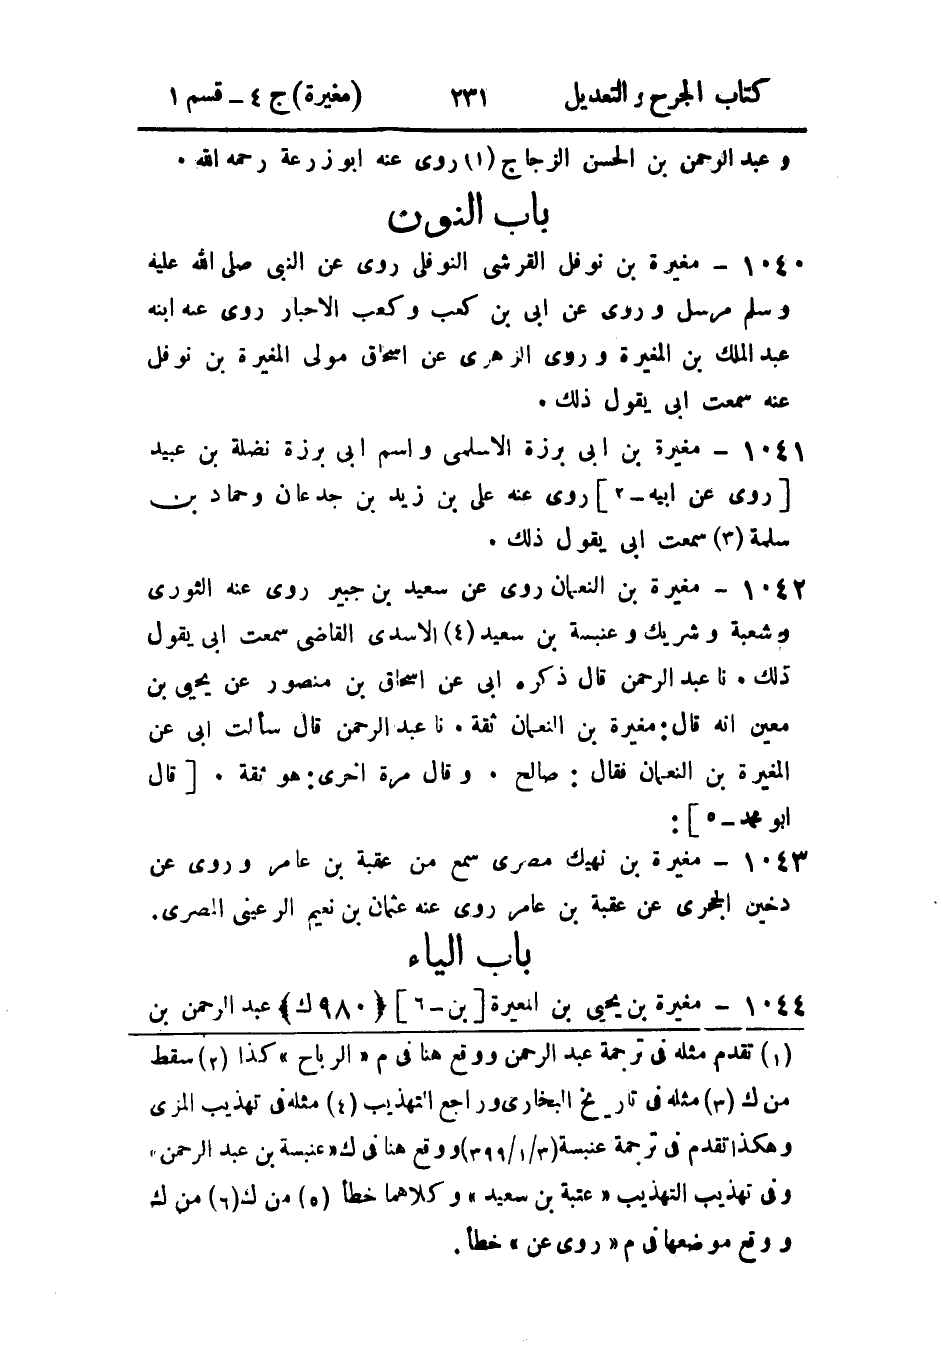 كتاب الجرح والتعديل ٢٣١ (مغيرة) ج ٤ – قسم ١
و عبد الرحمن بن الحسن الزجاج (١) روى عنه ابو زرعة رحمه الله ٠
باب النون
١٠٤٠ – مغيرة بن نوفل القرشى النوفلى روى عن النبى صلى الله عليه
و سلم مرسل و روى عن ابى بن كعب و كعب الاحبار روى عنه ابنه
عبد الملك بن المغيرة و روى الزهرى عن اسحاق مولى المغيرة بن نوفل
عنه سمعت ابى يقول ذلك ٠
١٠٤١ – مغيرة بن ابى برزة الاسلمى و اسم ابى برزة نضلة بن عبيد
[روى عن ابيه – ٢] روى عنه على بن زيد بن جدعان وحماد بن
سلمة (٣) سمعت ابى يقول ذلك ٠
١٠٤٢ – مغيرة بن النعمان روى عن سعيد بن جبير روى عنه الثورى
و شعبة و شريك و عنبسة بن سعيد (٤) الاسدى القاضى سمعت ابى يقول
ذلك ٠ نا عبد الرحمن قال ذكره ابى عن اسحاق بن منصور عن يحيى بن
معين انه قال: مغيرة بن النعمان ثقة ٠ نا عبد الرحمن قال سألت ابى عن
المغيرة بن النعمان فقال : صالح ٠ و قال مرة اخرى: هو ثقة ٠ [قال
ابو محمد – ٥]:
١٠٤٣ – مغيرة بن نهيك مصرى سمع من عقبة بن عامر و روى عن
دخين الحجرى عن عقبة بن عامر روى عنه عثمان بن نعيم الرعينى المصرى.
باب الياء
١٠٤٤ – مغيرة بن يحيى بن المغيرة [بن – ٦] (٩٨٠ ك) عبد الرحمن بن
(١) تقدم مثله فى ترجمة عبد الرحمن ووقع هنا فى م «الرباح» كذا (٢) سقط
من ك (٣) مثله فى تاريخ البخارى وراجع التهذيب (٤) مثله فى تهذيب المزى
و هكذا تقدم فى ترجمة عنبسة (٣٩٩/١/٣) ووقع هنا فى ك «عنبسة بن عبد الرحمن»
وفى تهذيب التهذيب «عتبة بن سعيد» و كلاهما خطأ (٥) من ك (٦) من ك
و وقع موضعها فى م «روى عن» خطأ.